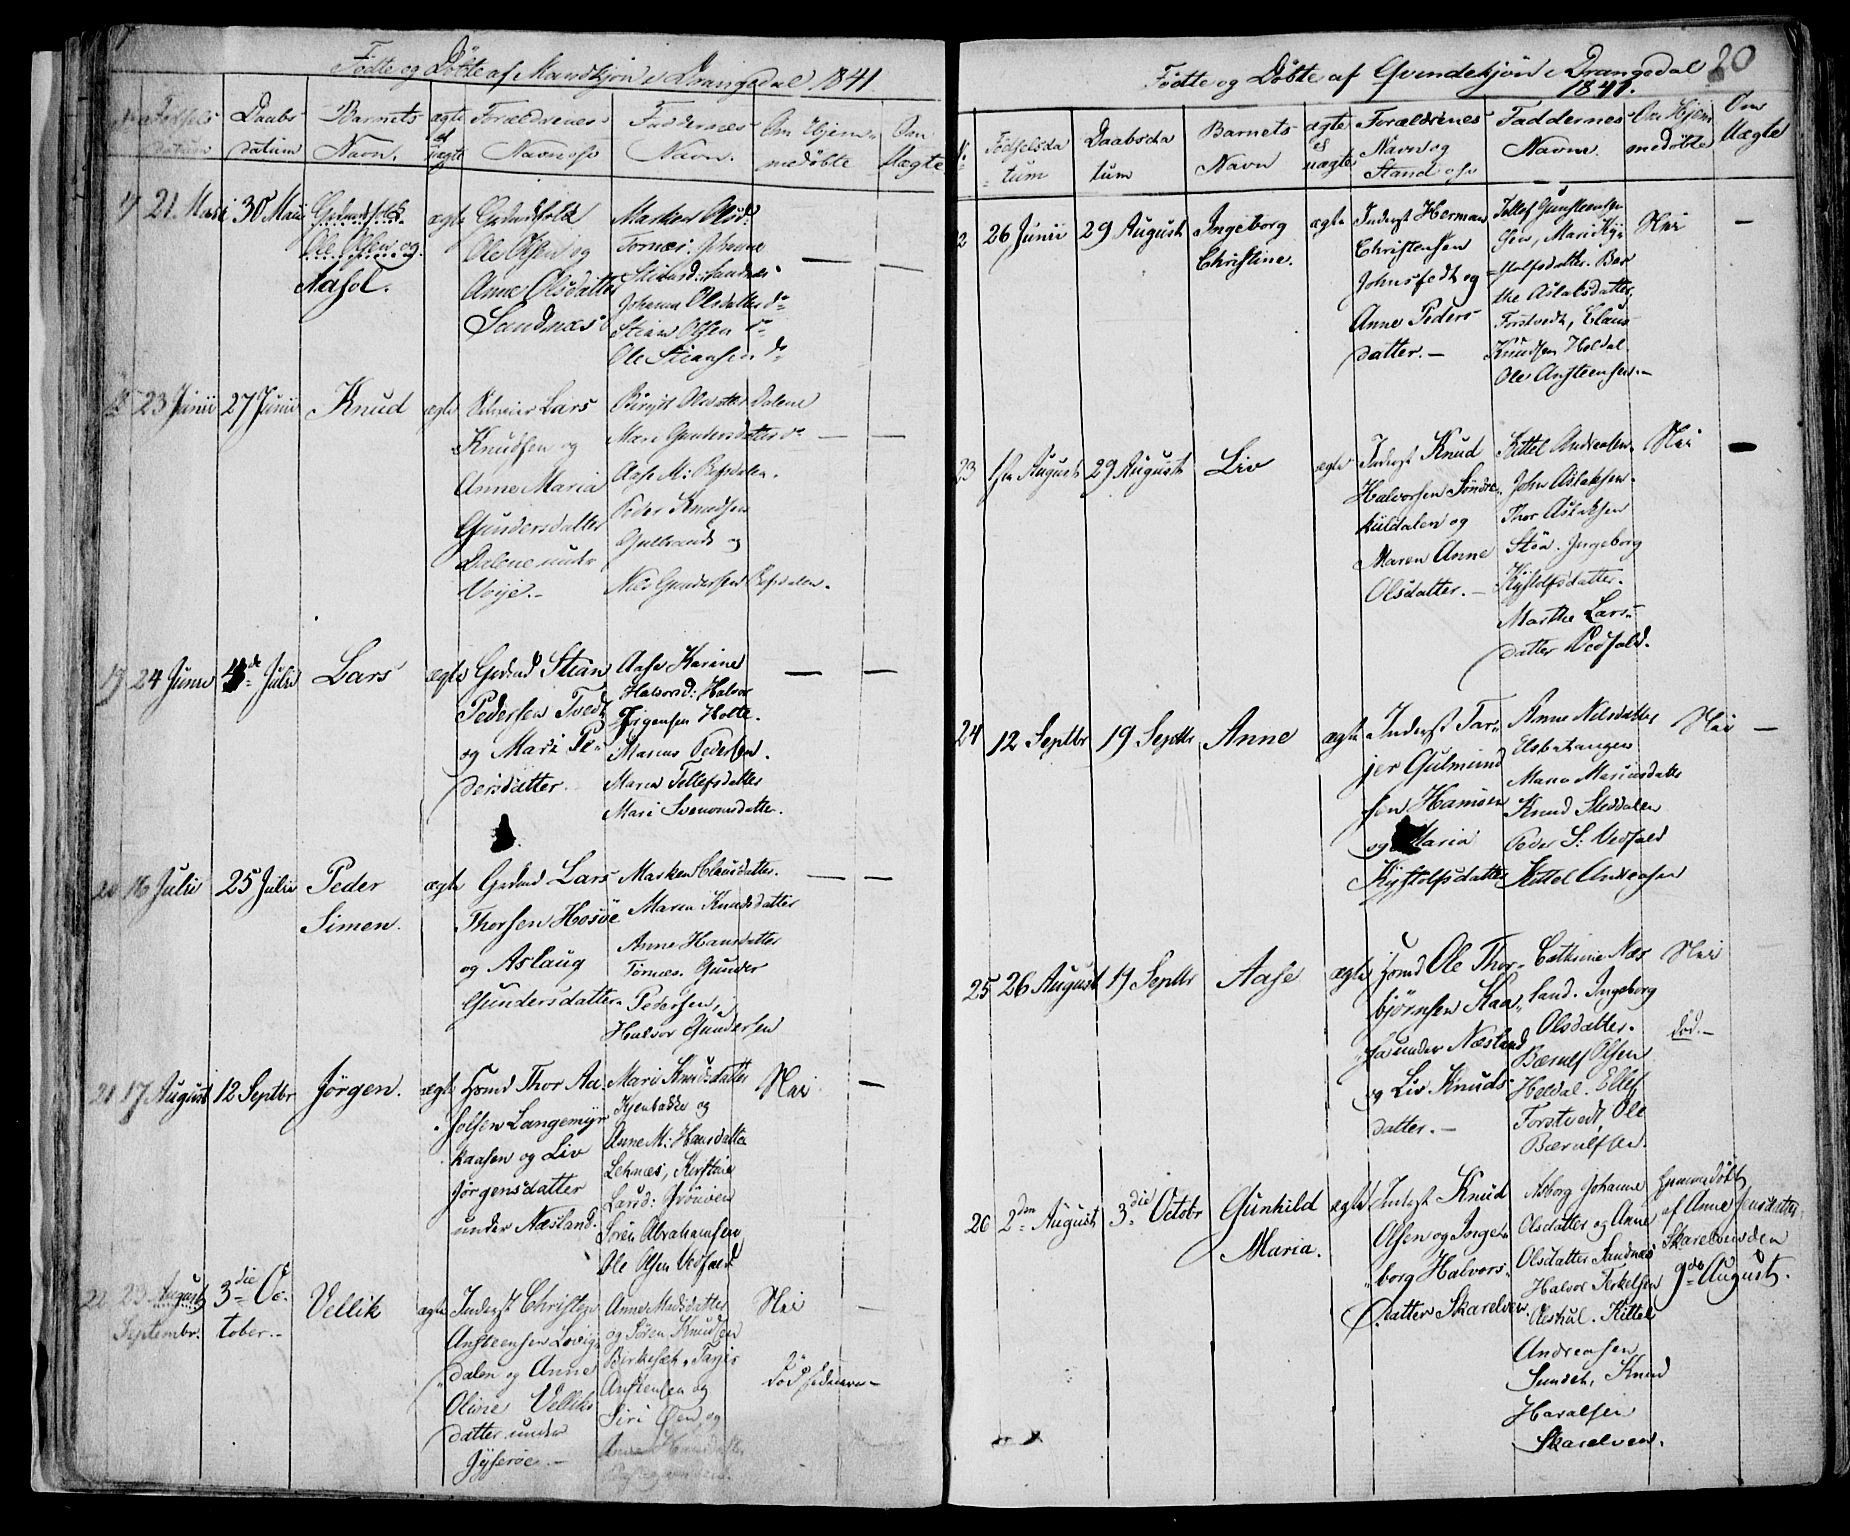 Fødte og Döbte af Mandkjön i Drangedal 1841
Fødsels
datum
Daabs
datum
Barnets
Navn.
ægte
el
uægte
Forældrenes
Navn osv
Faddernes
Navn.
Om Hjem
medöbte
Om
Uægte
17 21 Maii 30 Maii
Ole Olsen og
Aasol.
ægte
Ole Olsen og
Anne Olsdatter
Sandnæs
Marken Olsd:
Tornæs.
Johanne Olsdatter do
Stean Olsen do
Ole Steansen do
— —
23 Junii 27 Junii Knud ægte
Lars
Knudsen og
Anne Maria
Gundersdatter
Dalene under
Voje.
Birgit Olsdatter Dalene
Mari Gundersdatter do
Aase M:
Peder Knudsen
og
Nils Gundersen
— —
19 24 Junii 4de Julii Lars ægte
Grdmd Stean
Pedersen Tvedt
og Mari Pe-
dersdatter.
Aase Karine
Halvorsd: Halvor
Jörgensen Holte.
Marcus Pedersen.
Maren Tellefsdatter
Mari
— —
20 16 Julii 25 Julii Peder
Simen.
ægte
Grdmd Lars
Thorsen Hosöe
og Aslaug
Gundersdatter
Marken Clausdatter.
Maren Knudsdatter
Anne Hansdatter
Tornæs. Gunder
Pedersen,
Halvor Gundersen
— —
21 17 August 12 Septbr Jörgen. ægte
Hsmd Thor Aa-
solsen Langemyr
kaasen og Liv
Jörgensdatter
under Næsland.
Mari Knudsdatter
Kjenbakke og
Anne M: Hansdatter
Lehnæs, Kirstine
Larsd:
Sören Abrahamsen
Ole Olsen Vedfald
Nei —
22 23 August
Septembr.
3die Oc-
tober.
Vellik ægte
Inderst Christen
Ansteensen Lovig-
dalen og Anne
Oline Velliks
datter under
Anne Madsdatter
og Sören Knudsen
Birkesæt, Tarjer
Anstensen og
Siri Öen og
Nei —
Död
20
Födte og Döbte af Qvindekjön i Drangedal
1841.
No
Fødselsda
tum
Daabsda
tum
Barnets
Navn
ægte
el
uægte
Forældrenes
Navn og
Stand osv
Faddernes
Navne
Om Hjem
medöbte
Om
Uægte
22 26 Junii 29 August Ingeborg
Christine.
ægte
Inderst Herman
Christensen
Johnsfedt og
Anne Peders
datter.
Tellef Gunsteen-
sen, Mari Ky-
stolfsdatter. Ber
the Aslaksdatter,
Forstvedt, Claus
Knudsen Holdal
Ole Ansteensen.
Nei —
23 1ste August 29 August Liv ægte
Inderst Knud
Halvorsen Söndre-
kiildalen og
Maren Anne
Olsdatter.
Kittel Andreasen
John Aslaksen.
Thor Aslaksen
Stöa. Ingeborg
Kystolfsdatter.
Marthe Lars-
datter Vedfald.
Nei —
24 12 Septbr 19 Septbr Anne ægte
Inderst Tar-
jer Gulmund
sen Hamoen
og Maria
Kystolfsdatter
Anne Nilsdatter
Elsbethangen
Maria Mariusdatter
Knud
Peder S: Vedfald
Kittel Andreasen
Nei —
25 26 August 19 Septbr Aase ægte
Hsmd Ole Thor-
björnsen Kaa-
sa under Næsland
og Liv Knuds
datter.
Cathrine Næs
land. Ingeborg
Olsdatter.
Bærulf Olsen
Holdal. Ellef
Forstvedt, Ole
Bærulfsen.
Nei
död.
26 2den August 3die Octobr Gunhild
Maria.
ægte
Inderst Knud
Olsen og Inge-
borg Halvors-
datter Skarelven.
Aasborg Johanne
Olsdatter og Anne
Olsdatter Sandnæs
Halvor Terkelsen
Kittel
Andreasen
Sundet, Knud
Haralsen
Skarelven.
Hjemmedöbt
af Anne Jensdatter
Skarelven den
9de August.